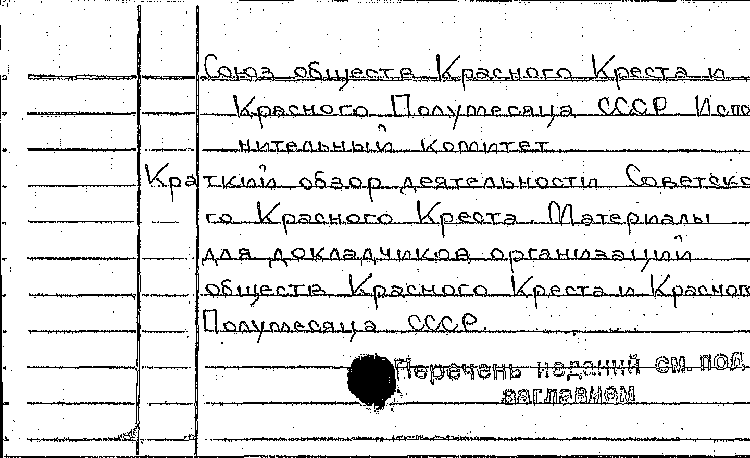 Союз обществ Красного Креста и
Красного Полумесяца СССР Испо
нительный комитет.
Краткий обзор деятельности Советско
го Красного Креста. Материалы
для докладчиков организаций
обществ Красного Креста и Красног
Полумесяца СССР.
Перечень изданий см. под
заглавием